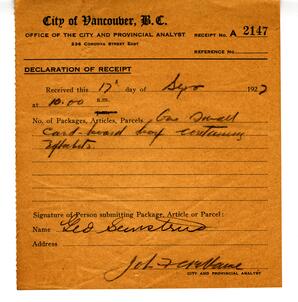 City of Vancouver, B.C.
OFFICE OF THE CITY AND PROVINCIAL ANALYST
236 CORDOVA STREET EAST
RECEIPT No. A 2147
REFERENCE No.
DECLARATION OF RECEIPT
Received this 17th day of Sep 1927
at 10.00 a.m.
No. of Packages, Articles, Parcels. One small
card-board box containing
Signature of Person submitting Package, Article or Parcel:
Name Geo
Address
CITY AND PROVINCIAL ANALYST